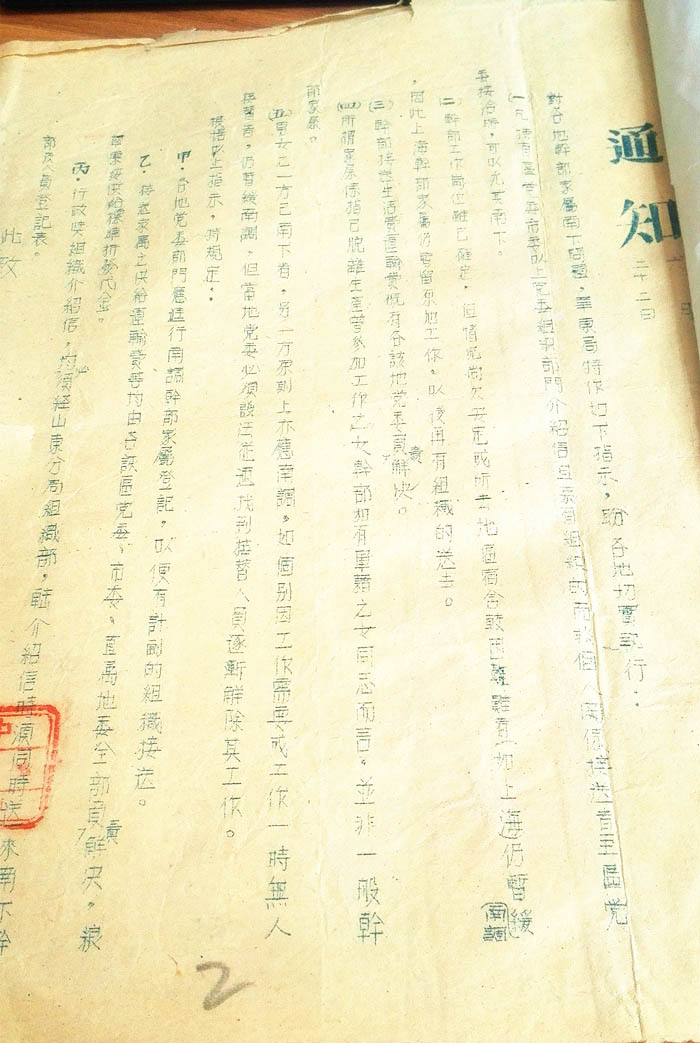 通知
二十二日
對各地幹部家屬南下問題，華東局特作如下指示，盼各地切實執行：
(一)凡 有區党委市委以上党委組織部門介紹信且系有組織的而或個人関係接送者至區党
委接洽所，可以允其南下。
(二)幹部工作崗位雖已確定，但情况尚欠安定或所去地區宿舍較困難難直一如上海仍暫緩南調
，因此上海幹部家屬仍暫留原地工作，以後再有組織的送去。
(三)幹部接送生活費運輸費概有各該地党委負責解决。
(四)所謂家屬係指已脱離生產曾參加工作之女幹部如有軍籍之女同志而言。並非一般幹
部家屬。
(五)男女之一方已南下者，另一方原則上亦應南調。如個别因工作需要或工作一時無人
接替者，仍暫緩南調，但當地党委必須設法迅速找到接替人員逐漸解除其工作。
根据以上指示，特規定：
甲．各地党委部門應進行南調幹部家屬登記，以便有計劃的組織接送。
乙．接送家屬之供給運輸費等均由各該區党委、市委、直屬地委全部負責解决，粮
草東按供給標準折發代金。
丙．行政與組織介紹信，均須经山東分局組織部，転介紹信時須同時送來南下幹
部及人員登記表。
此致
中
2